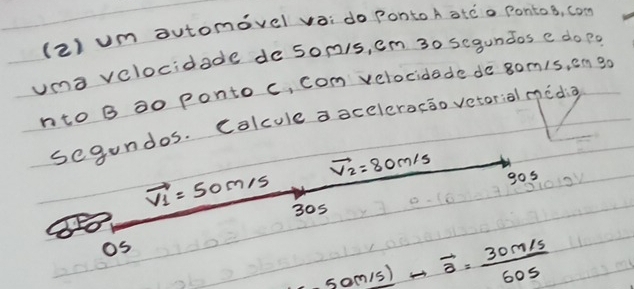 (2) um automóvel vai do ponto A até o ponto B, com
uma velocidade de 50m/s, em 30 segundos e do po
nto B ao ponto C, com velocidade de 80m/s, em 90
segundos. Calcule a aceleração vetorial média
V₁ = 50m/s
V₂ = 80m/s
0s
30s
90s
50m/s) → a = 30m/s
60s